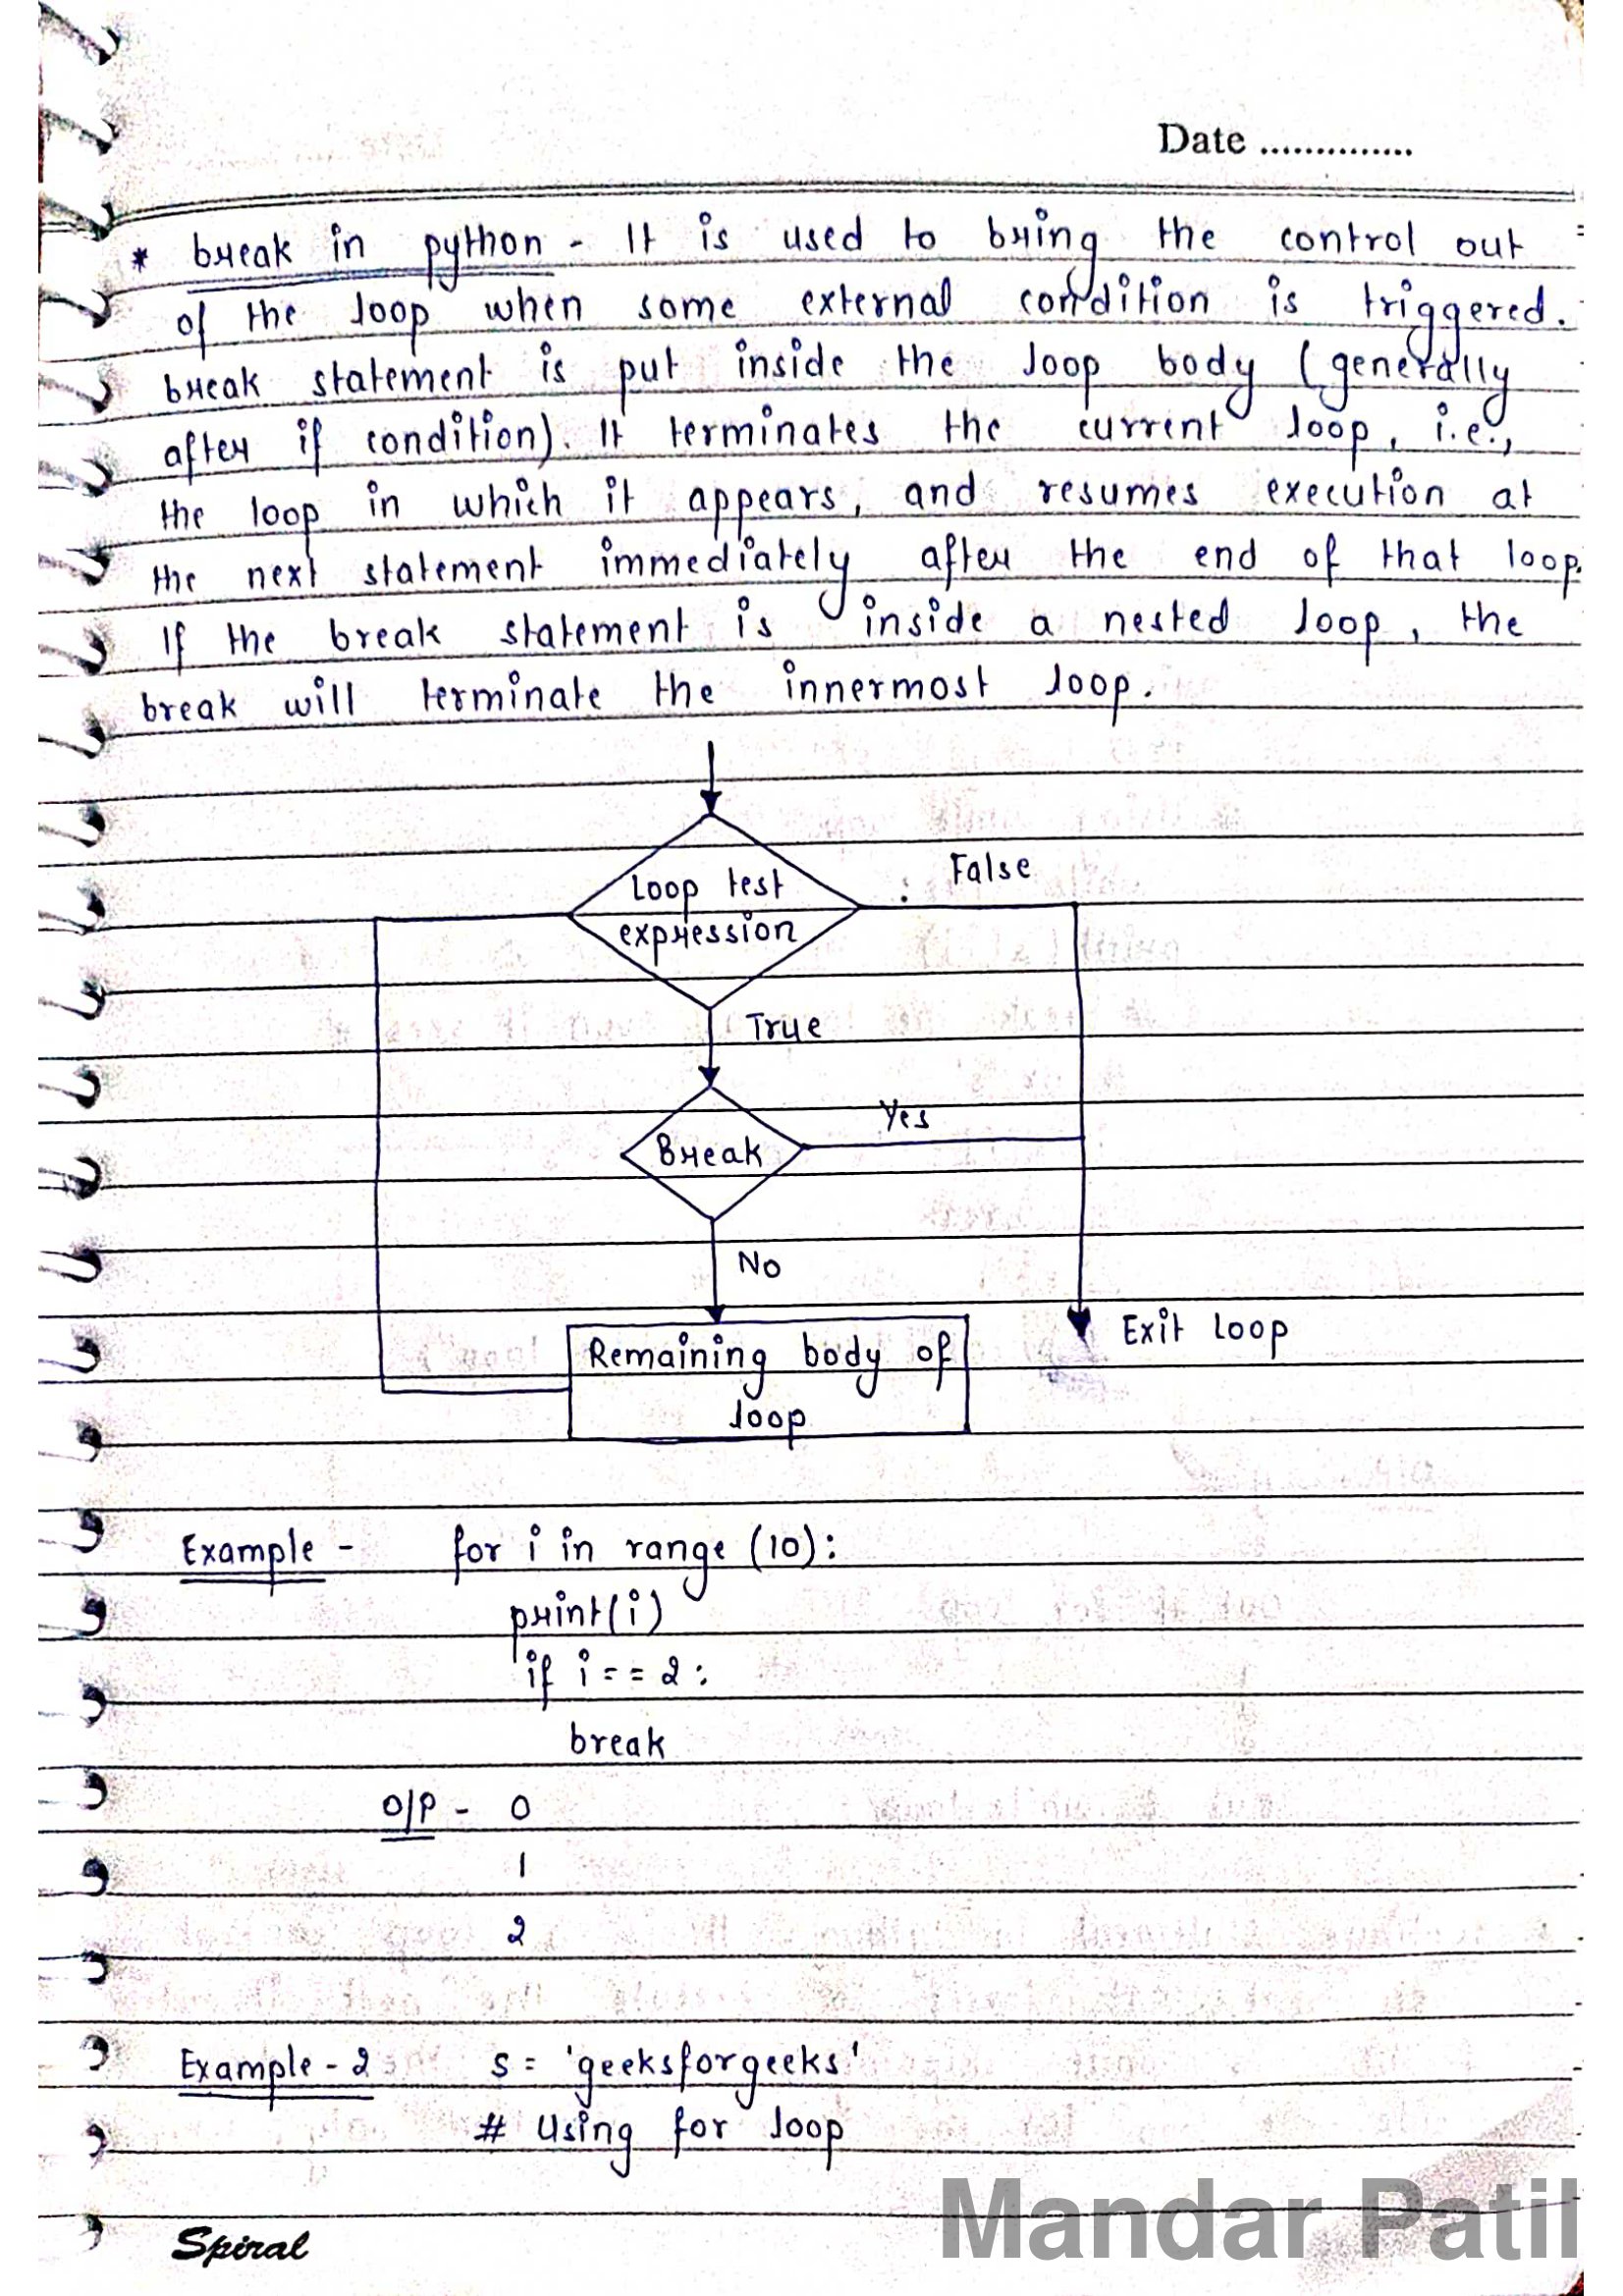 Date ..............
* break in python - It is used to bring the control out
of the loop when some external condition is triggered.
break statement is put inside the loop body (generally
after if condition). It terminates the current loop, i.e.,
the loop in which it appears, and resumes execution at
the next statement immediately after the end of that loop.
If the break statement is inside a nested loop, the
break will terminate the innermost loop.
Loop test
expression
False
True
Break
Yes
No
Remaining body of
loop
Exit loop
Example - for i in range (10):
print(i)
if i == 2:
break
O/P - 0
1
2
Example - 2 s = 'geeksforgeeks'
# Using for loop
Spiral
Mandar Patil